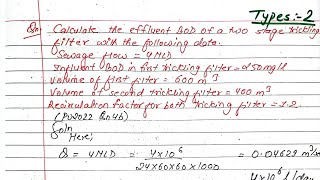 Types:-2
Qn: Calculate the effluent BOD of a two stage trickling
filter with the following data.
Sewage flow = 4MLD
Influent BOD in first trickling filter = 250mg/l
Volume of first filter = 600 m³
Volume of second trickling filter = 400 m³
Recirculation factor for both trickling filter = 1.2
(PU2022 Qn4b)
Soln
Here;
Q = 4MLD = 4×10⁶ / 24×60×60×1000 = 0.04629 m³/s
4×10⁶ l/day